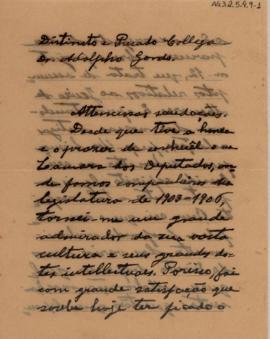 A63.2.5.4.9-1
Distincto e Prezado Collega
Dr. Adolpho Gordo.
Attenciosas saudações.
Desde que tive a honra
e o prazer de conhecel-o na
Camara dos Deputados, on-
de fomos companheiros na
legislatura de 1903-1906,
tornei-me um grande
admirador da sua vasta
cultura e seus grandes do-
tes intellectuaes. Por isso, foi
com grande satisfação que
soube hoje ter ficado o